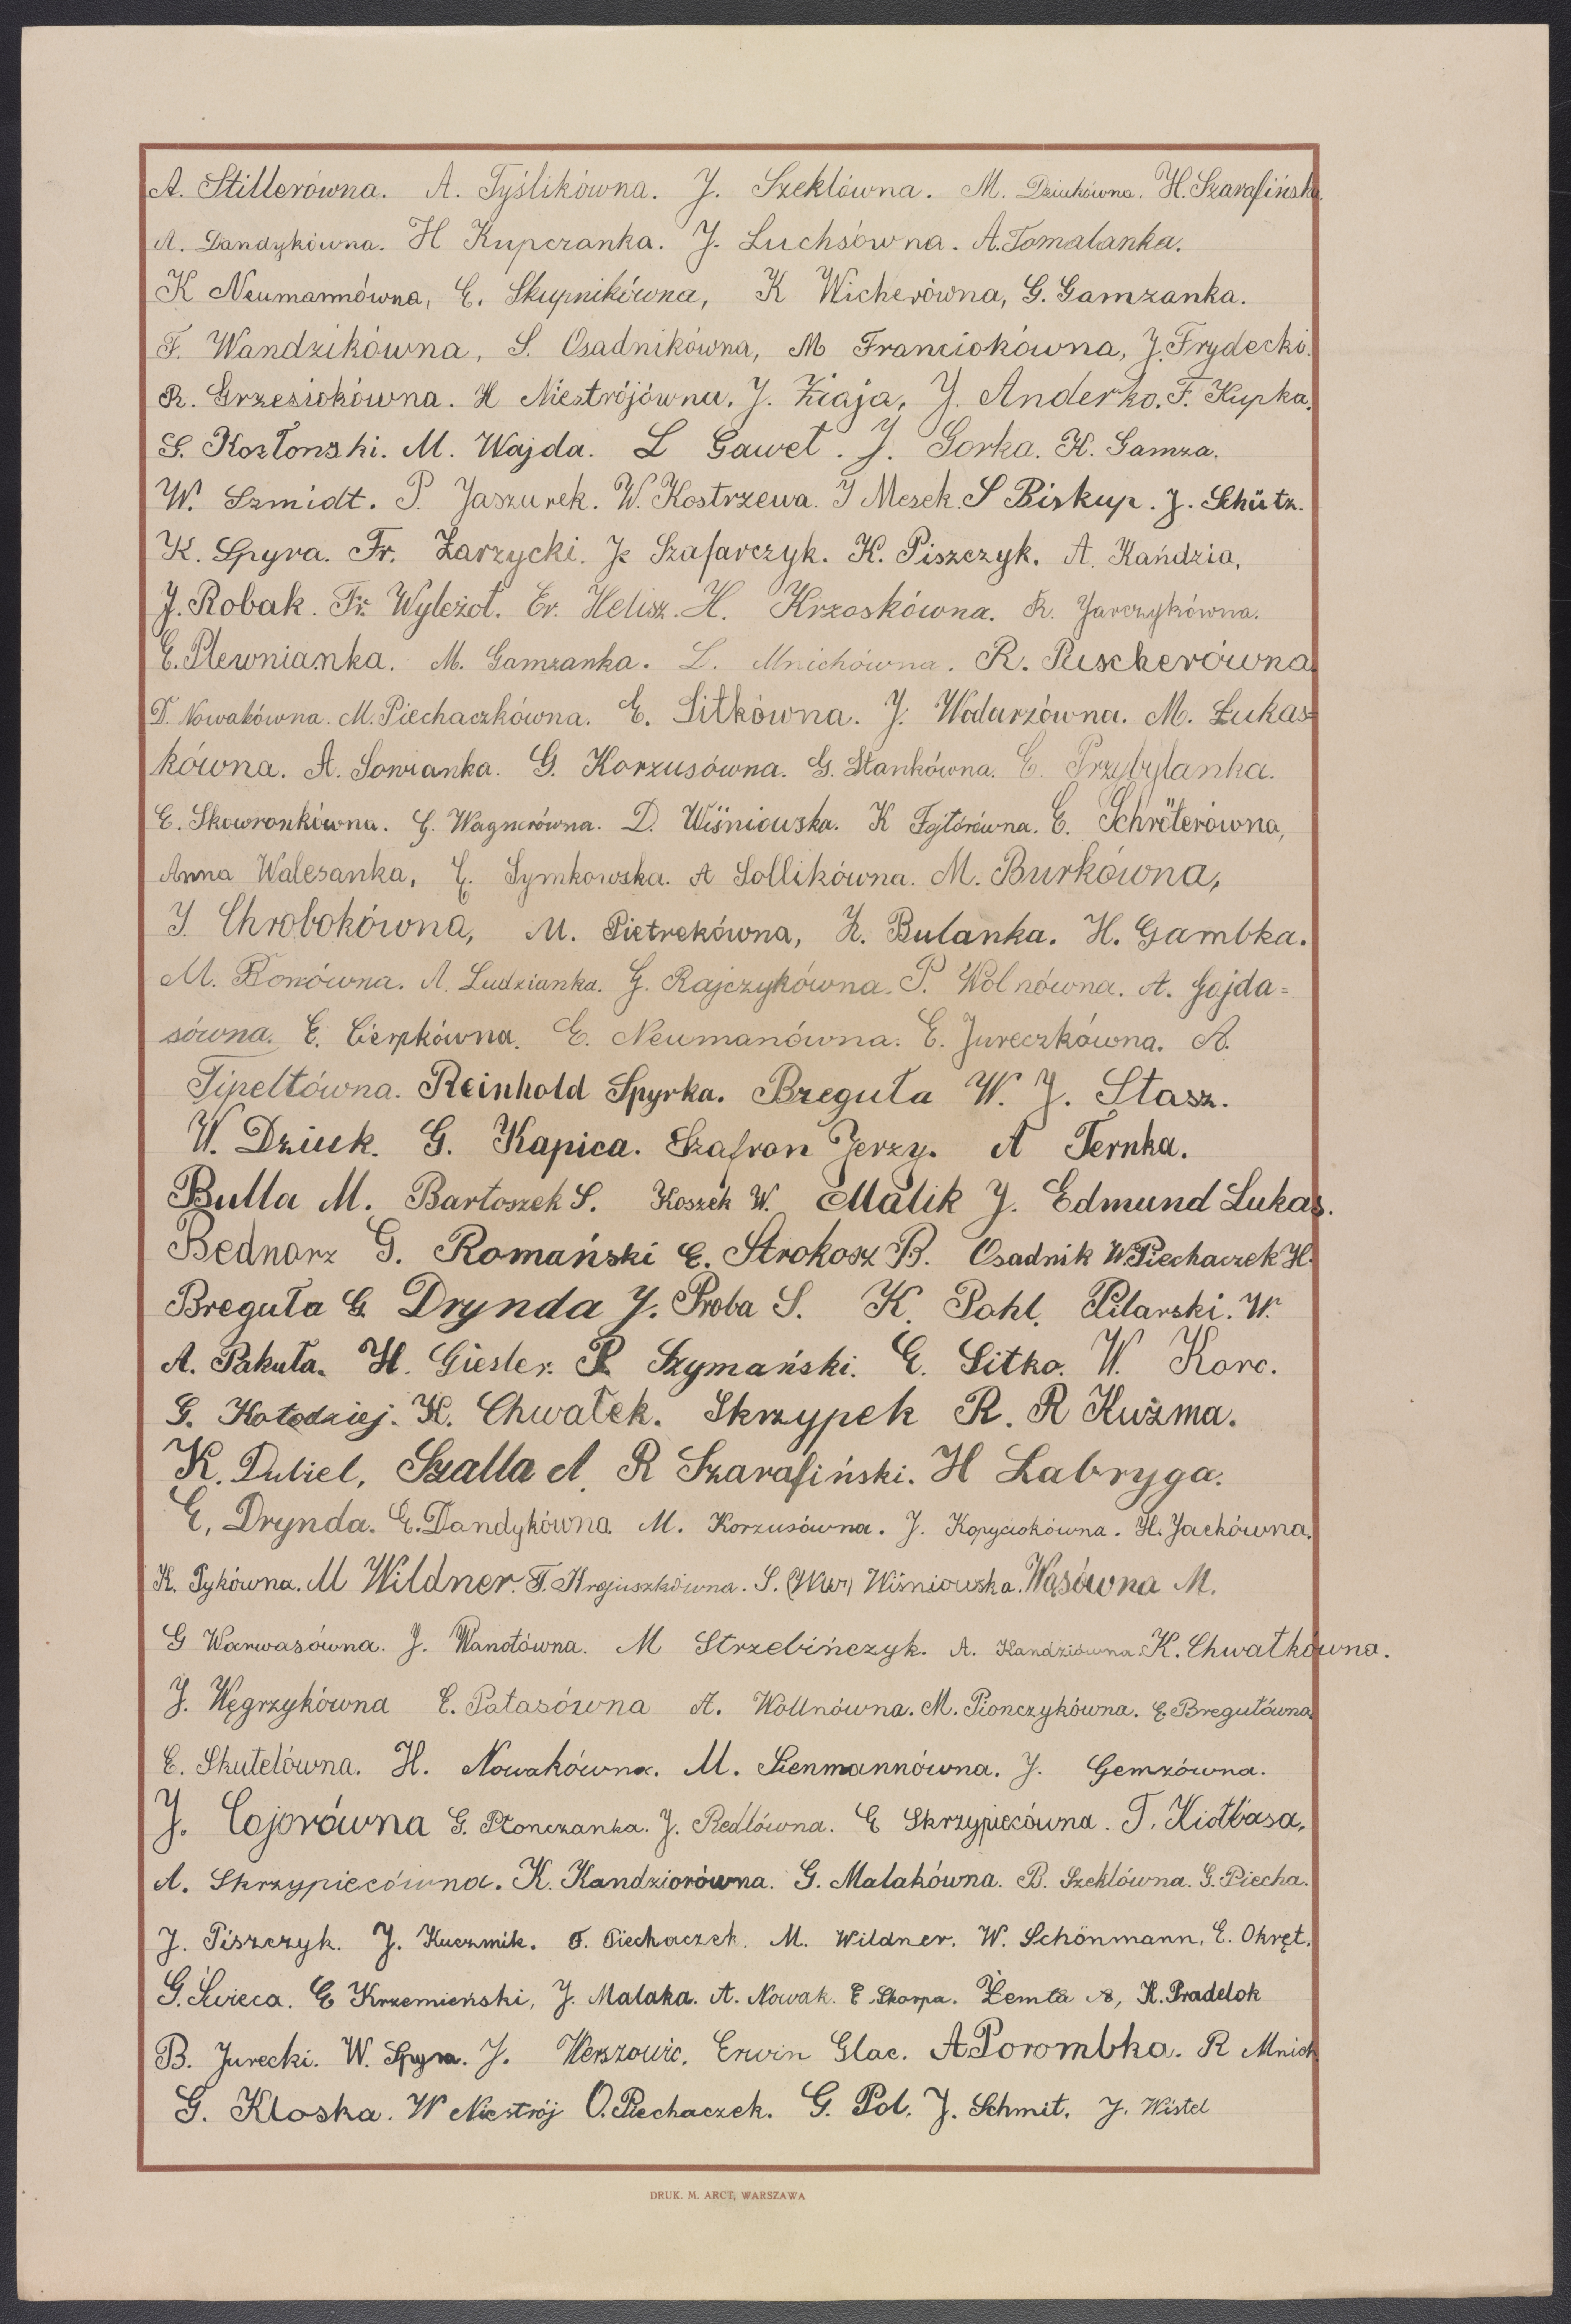 A. Stillerówna. A. Tyślikówna. J. Szeklówna. M. Dziukówna. H. Szarafińska
A. Dandykówna. H Kupczanka. J. Luchsówna. A. Tomalanka.
K Neumannówna, E. Skupnikówna, K Wicherówna, G. Gamzanka.
F. Wandzikówna, S. Osadnikówna, M Franciokówna, J. Frydecki.
R. Grzesiokówna. H Niestrójówna. J. Ziaja, J. Anderko. F. Kupka.
S. Kozłonski. M. Wajda. L Gaweł. J. Gorka. K. Gamza.
W. Szmidt. P. Jaszurek. W. Kostrzewa. J Mesek. S Biskup. J. Schütz.
K. Spyra. Fr. Zarzycki. Szafarczyk. K. Piszczyk. A. Kańdzia,
J. Robak. Fr. Wyleżoł. Er. Helisz. H. Krzoskówna. R. Jarczykówna.
E. Plewnianka. M. Gamzanka. L. Mnichówna. R. Puscherówna
D. Nowakówna. M. Piechaczkówna. E. Sitkówna. J. Wodarzówna. M. Łukas=
kówna. A. Sowianka. G. Korzusówna. G. Stankówna. E. Przybylanka.
E. Skowronkówna. G. Wagnerówna. D. Wiśniowska. K Fojtórówna. E. Schröterówna,
Anna Walesanka, E. Symkowska. A Sollikówna. M. Burkówna,
J. Chrobokówna, M. Pietrekówna, Z. Bulanka. H. Gambka.
M. A. Ludzianka. G. Rajczykówna. P. Wolnówna. A. Gajda=
sówna. E. Cierpkówna. E. Neumanówna. E. Jureczkówna. A.
Tipeltówna. Reinhold Spyrka. Breguła W. J. Stasz.
W. Dziuk. G. Kapica. Szafron Jerzy. A Ternka.
Bulla M. Bartoszek S. Koszek W. Malik J. Edmund Lukas.
Bednorz G. Romański E. Strokosz B. Osadnik W. Piechaczek H.
Breguła G. Drynda J. Proba S. K. Pohl. Pilarski. W.
A. Pakuła. H. Giesler. P. Szymański. E. Sitko. W. Korc.
G. Kołodziej. K. Chwałek. Skrzypek R. R Kuźma.
K. Dubiel, Szalla A. R Szarafiński. H Labryga.
E, Drynda. E. Dandykówna M. Korzusówna. J. Kopyciokówna. H. Jaekówna.
K. Pykówna. M Wildner. F. Krajuszkówna. S. Wiśniowska. Wąsówna M.
G Warwasówna. J. Wanotówna. M Strzebińczyk. A. Kandziówna. K. Chwałkówna.
J. Węgrzykówna E. Pałasówna A. Wollnówna. M. Pionczykówna. E Bregułówna
E. Skutelówna. H. Nowakówna. M. Sienmannówna. J. Gemzówna.
J. Cojorówna G. Płonczanka. J. Redlówna. E Skrzypiecówna. T. Kiołbasa,
A. Skrzypiecówna. K. Kandziorówna. G. Malakówna. B. Szeklówna. G. Piecha.
J. Piszczyk. J. Kuczmik. F. Piechaczek. M. Wildner. W. Schönmann, E. Okręt.
G. Świeca. E Krzemieński, J. Malaka. A. Nowak. E Skorpa. Żemła A, K. Pradelok
B. Jurecki. W. Spyra. J. Werszowic. Erwin Glac. A Porombka. R Mnich
G. Kloska. W Niestrój O. Piechaczek. G. Pol. J. Schmit. J. Wistel
DRUK. M. ARCT, WARSZAWA